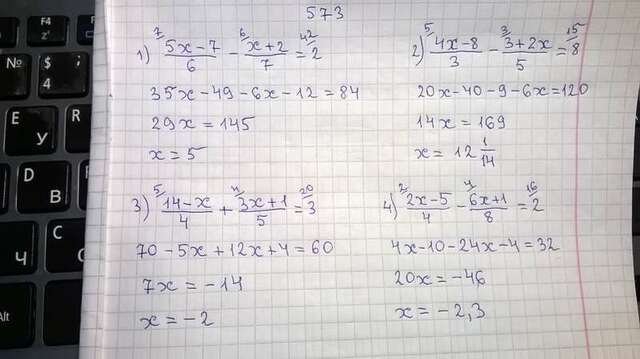 573
1) ⁷/ (5x-7)/6 - ⁶/ (x+2)/7 = ⁴²/ 2
35x-49-6x-12=84
29x=145
x=5
2) ⁵/ (4x-8)/3 - ³/ (3+2x)/5 = ¹⁵/ 8
20x-40-9-6x=120
14x=169
x=12 1/14
3) ⁵/ (14-x)/4 + ⁴/ (3x+1)/5 = ²⁰/ 3
70-5x+12x+4=60
7x=-14
x=-2
4) ²/ (2x-5)/4 - ⁴/ (6x+1)/8 = ¹⁶/ 2
4x-10-24x-4=32
20x=-46
x=-2,3
F4
F5
№
$
4
E
У
R
D
В
F
С
Ч
Alt